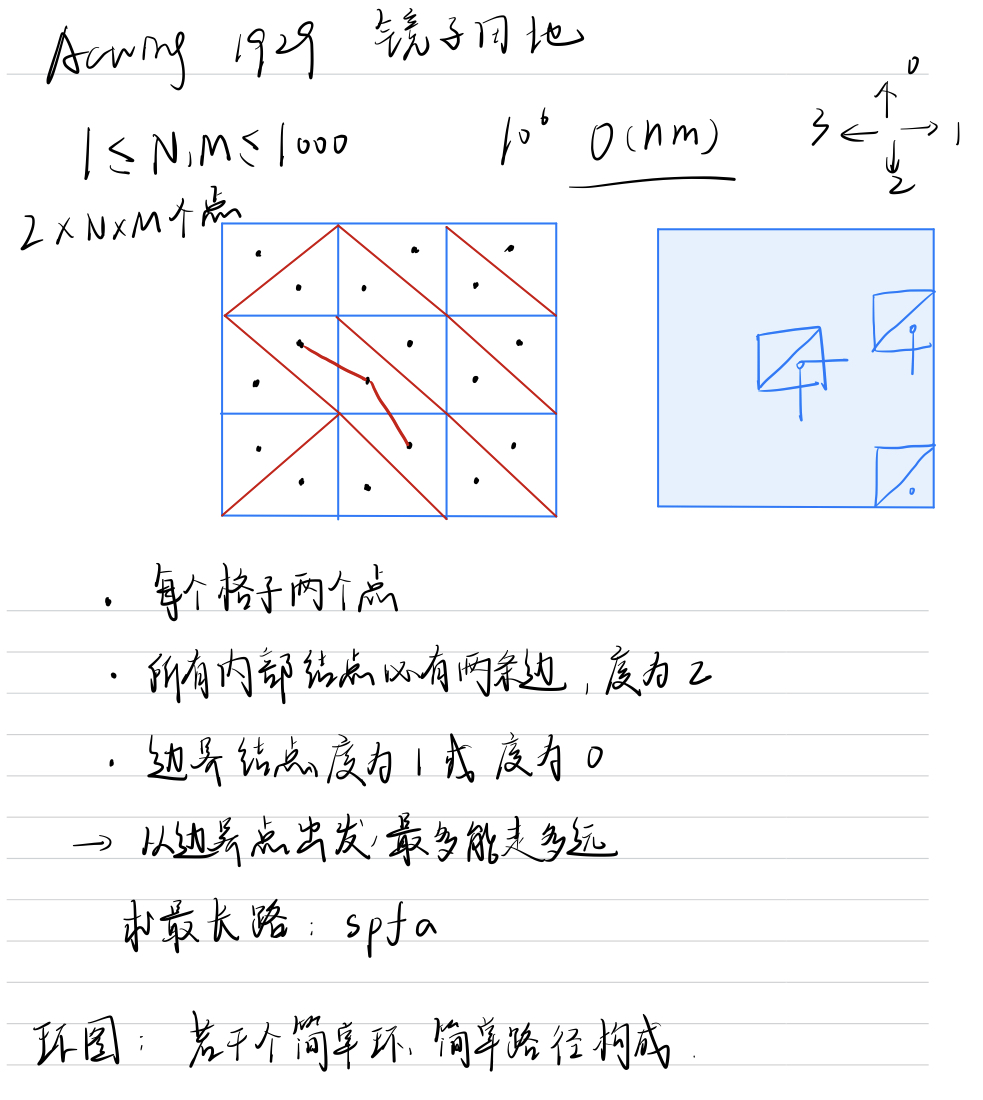 Acwing 1929 镜子田地
1 ≤ N,M ≤ 1000 10⁶ O(nm)
0
3 1
2
2×N×M个点
· 每个格子两个点
· 所有内部结点必有两条边,度为2
· 边界结点度为1或度为0
→ 从边界点出发,最多能走多远
求最长路:spfa
环图:若干个简单环、简单路径构成.